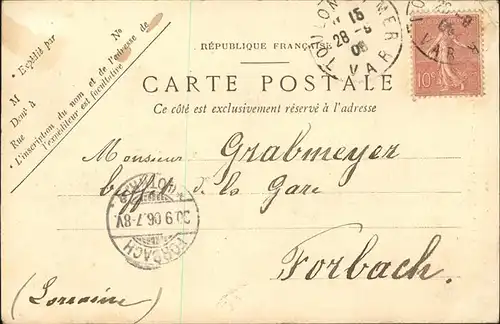 N° ou
Expédié par et de l'adresse de
M
Demt à
Rue
• L'inscription du nom et de l'adresse de
l'expéditeur est facultative
RÉPUBLIQUE FRANÇAISE
CARTE POSTALE
Ce côté est exclusivement réservé à l'adresse
TOULON MER
15
28 -
06
VAR
06
VAR
10c
Monsieur Grabmeyer
buffet de la Gare
Forbach.
(Lorraine)
30.9.06.7-8V.
FORBACH